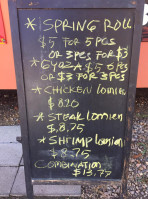 * SPRING ROLL
$5 FOR 5 PCS
OR 3PCS FOR $3
* GYOZA $5 5PCS
OR $3 FOR 3PCS
* CHICKEN lomien
$ 8.20
* STEAK lomien
$ 8.75
* SHRIMP lomien
$ 8.75
COMBINATION
$13.77